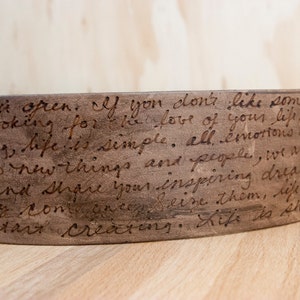 open. If you don't like som
ooking for the love of your life
g, life is simple. all emotions
new things and people, we a
nd share your inspiring drea
seize them, li
start creating. Life is s